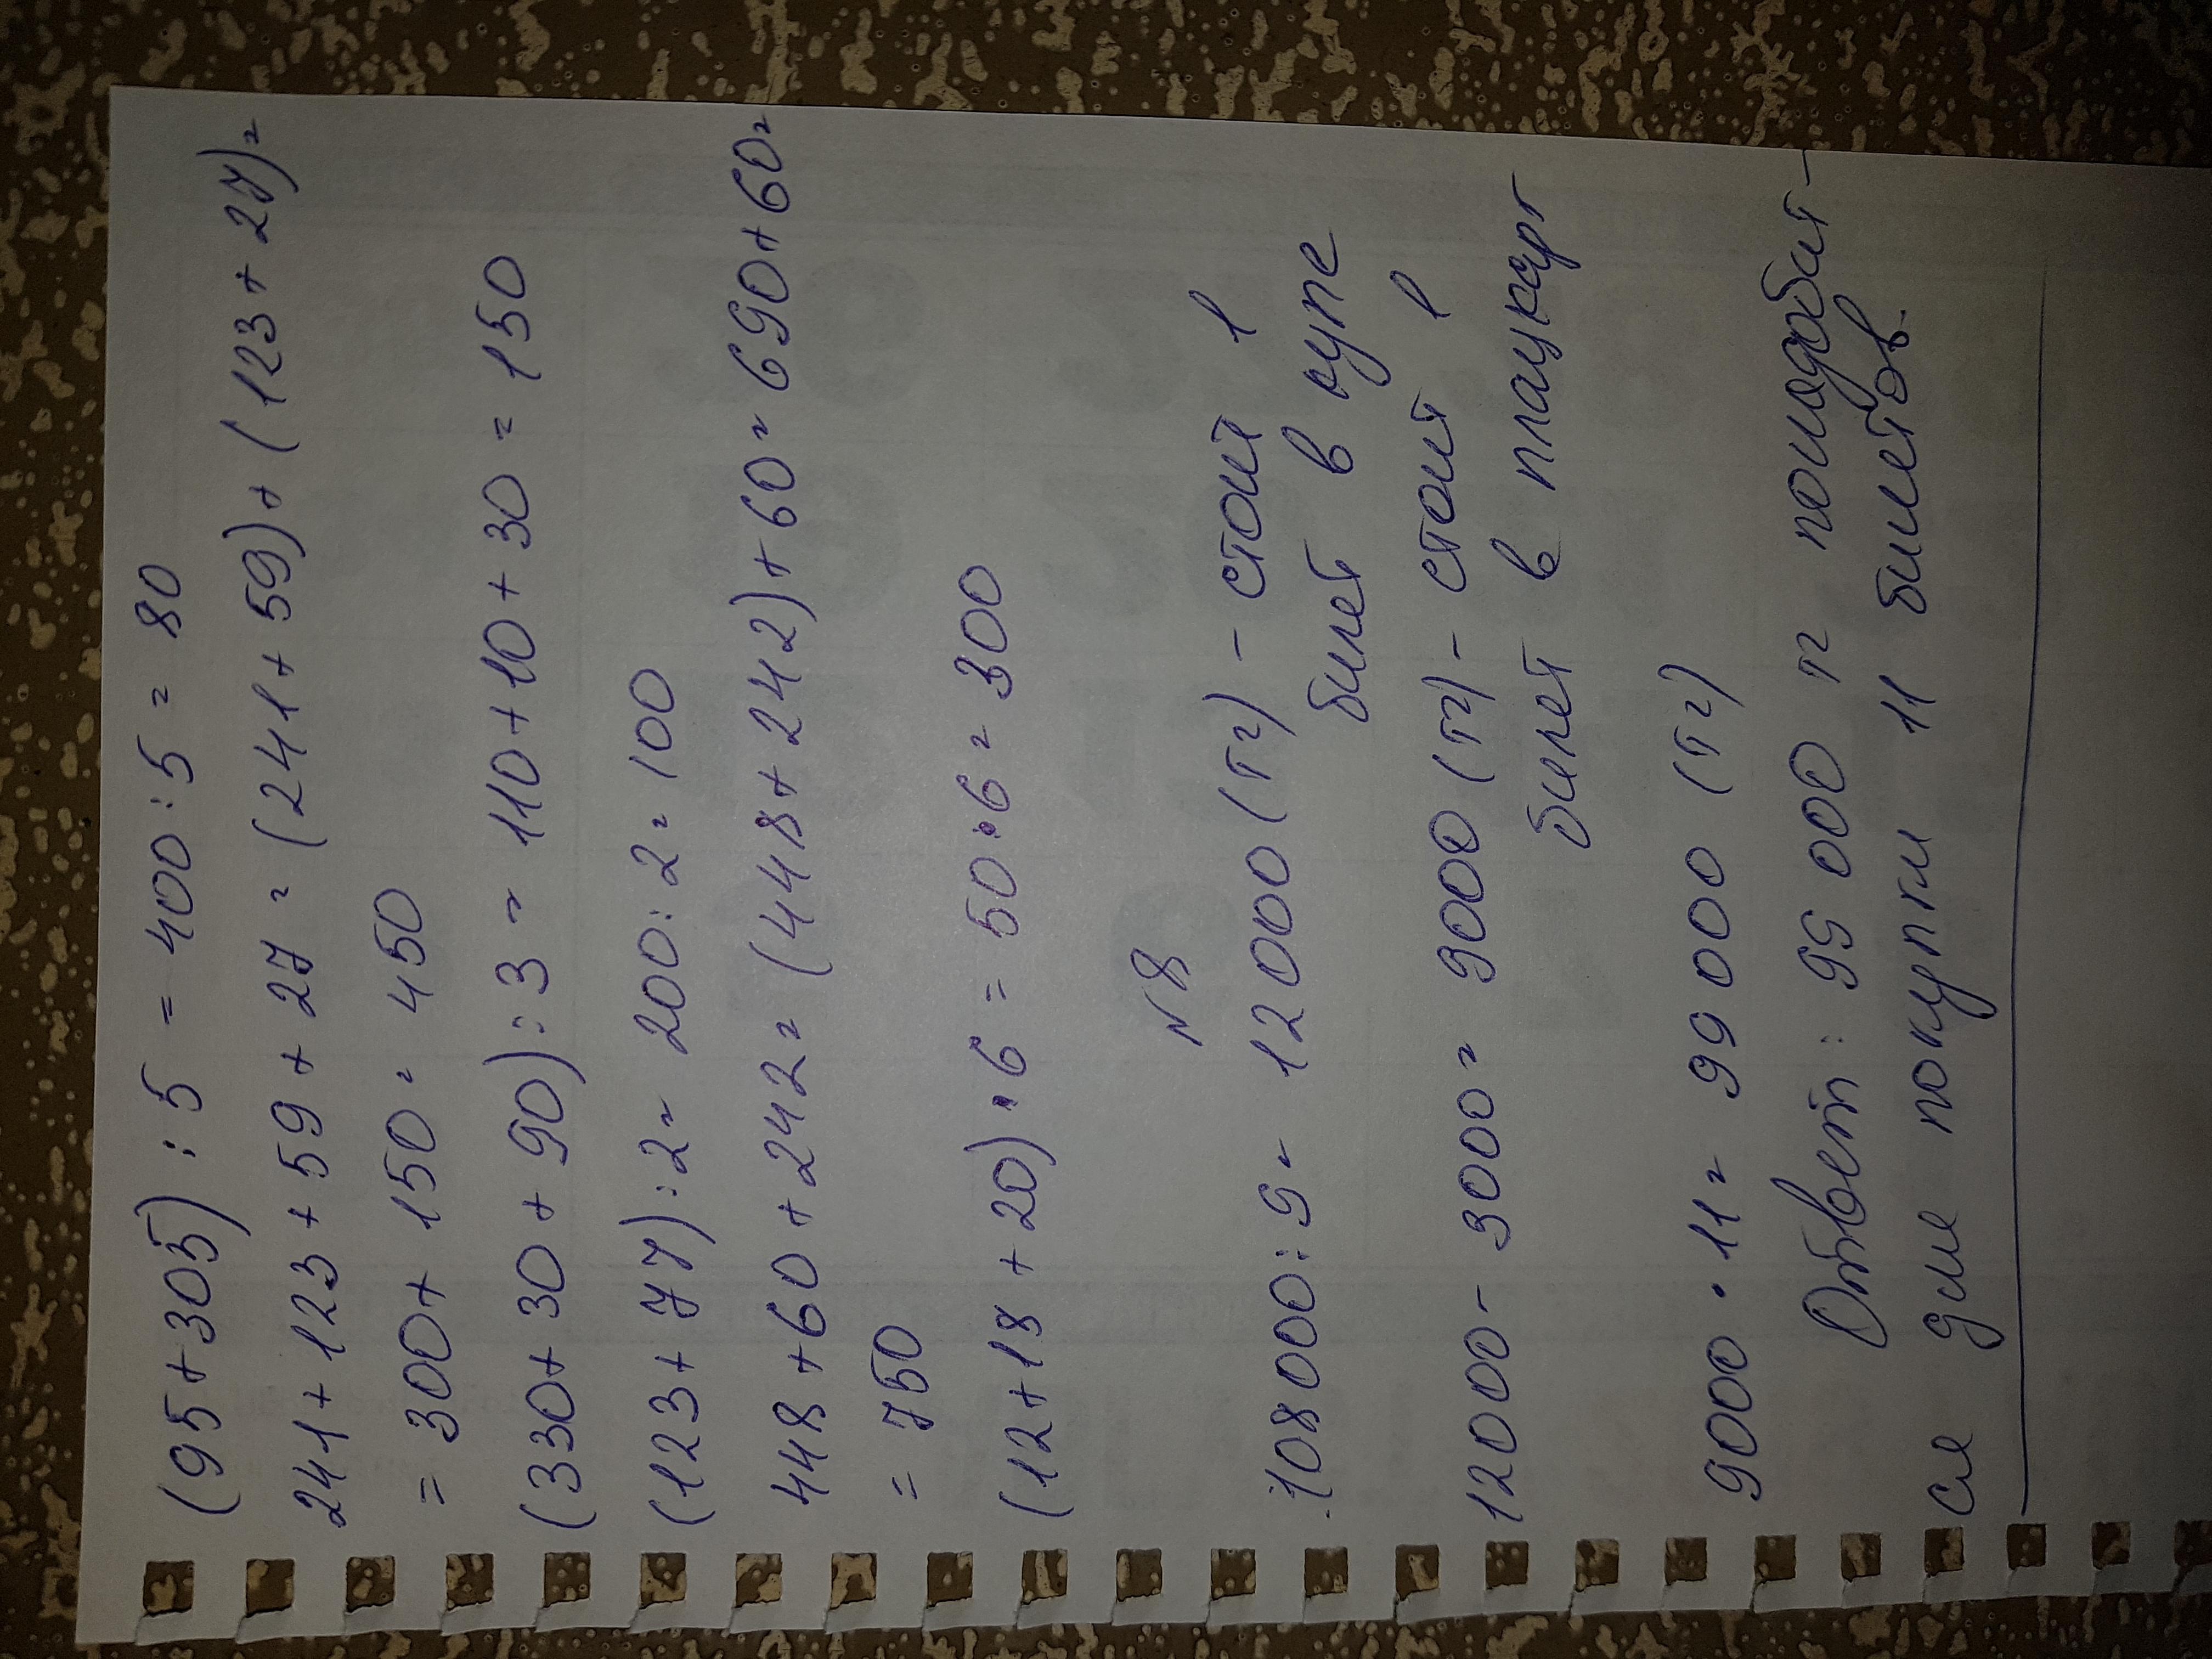 (95+305) : 5 = 400 : 5 = 80
241+123+59+27 = (241+59)+(123+27)=
= 300+150 = 450
(330+30+90) : 3 = 110+10+30 = 150
(123+77) : 2 = 200 : 2 = 100
448+60+242 = (448+242)+60 = 690+60=
= 750
(12+18+20) • 6 = 50 • 6 = 300
N 8
108 000 : 9 = 12 000 (тг) - стоит 1
билет в купе
12000 - 3000 = 9000 (тг) - стоит 1
билет в плацкарт
9000 • 11 = 99 000 (тг)
Ответ: 99 000 тг понадобит-
ся для покупки 11 билетов.